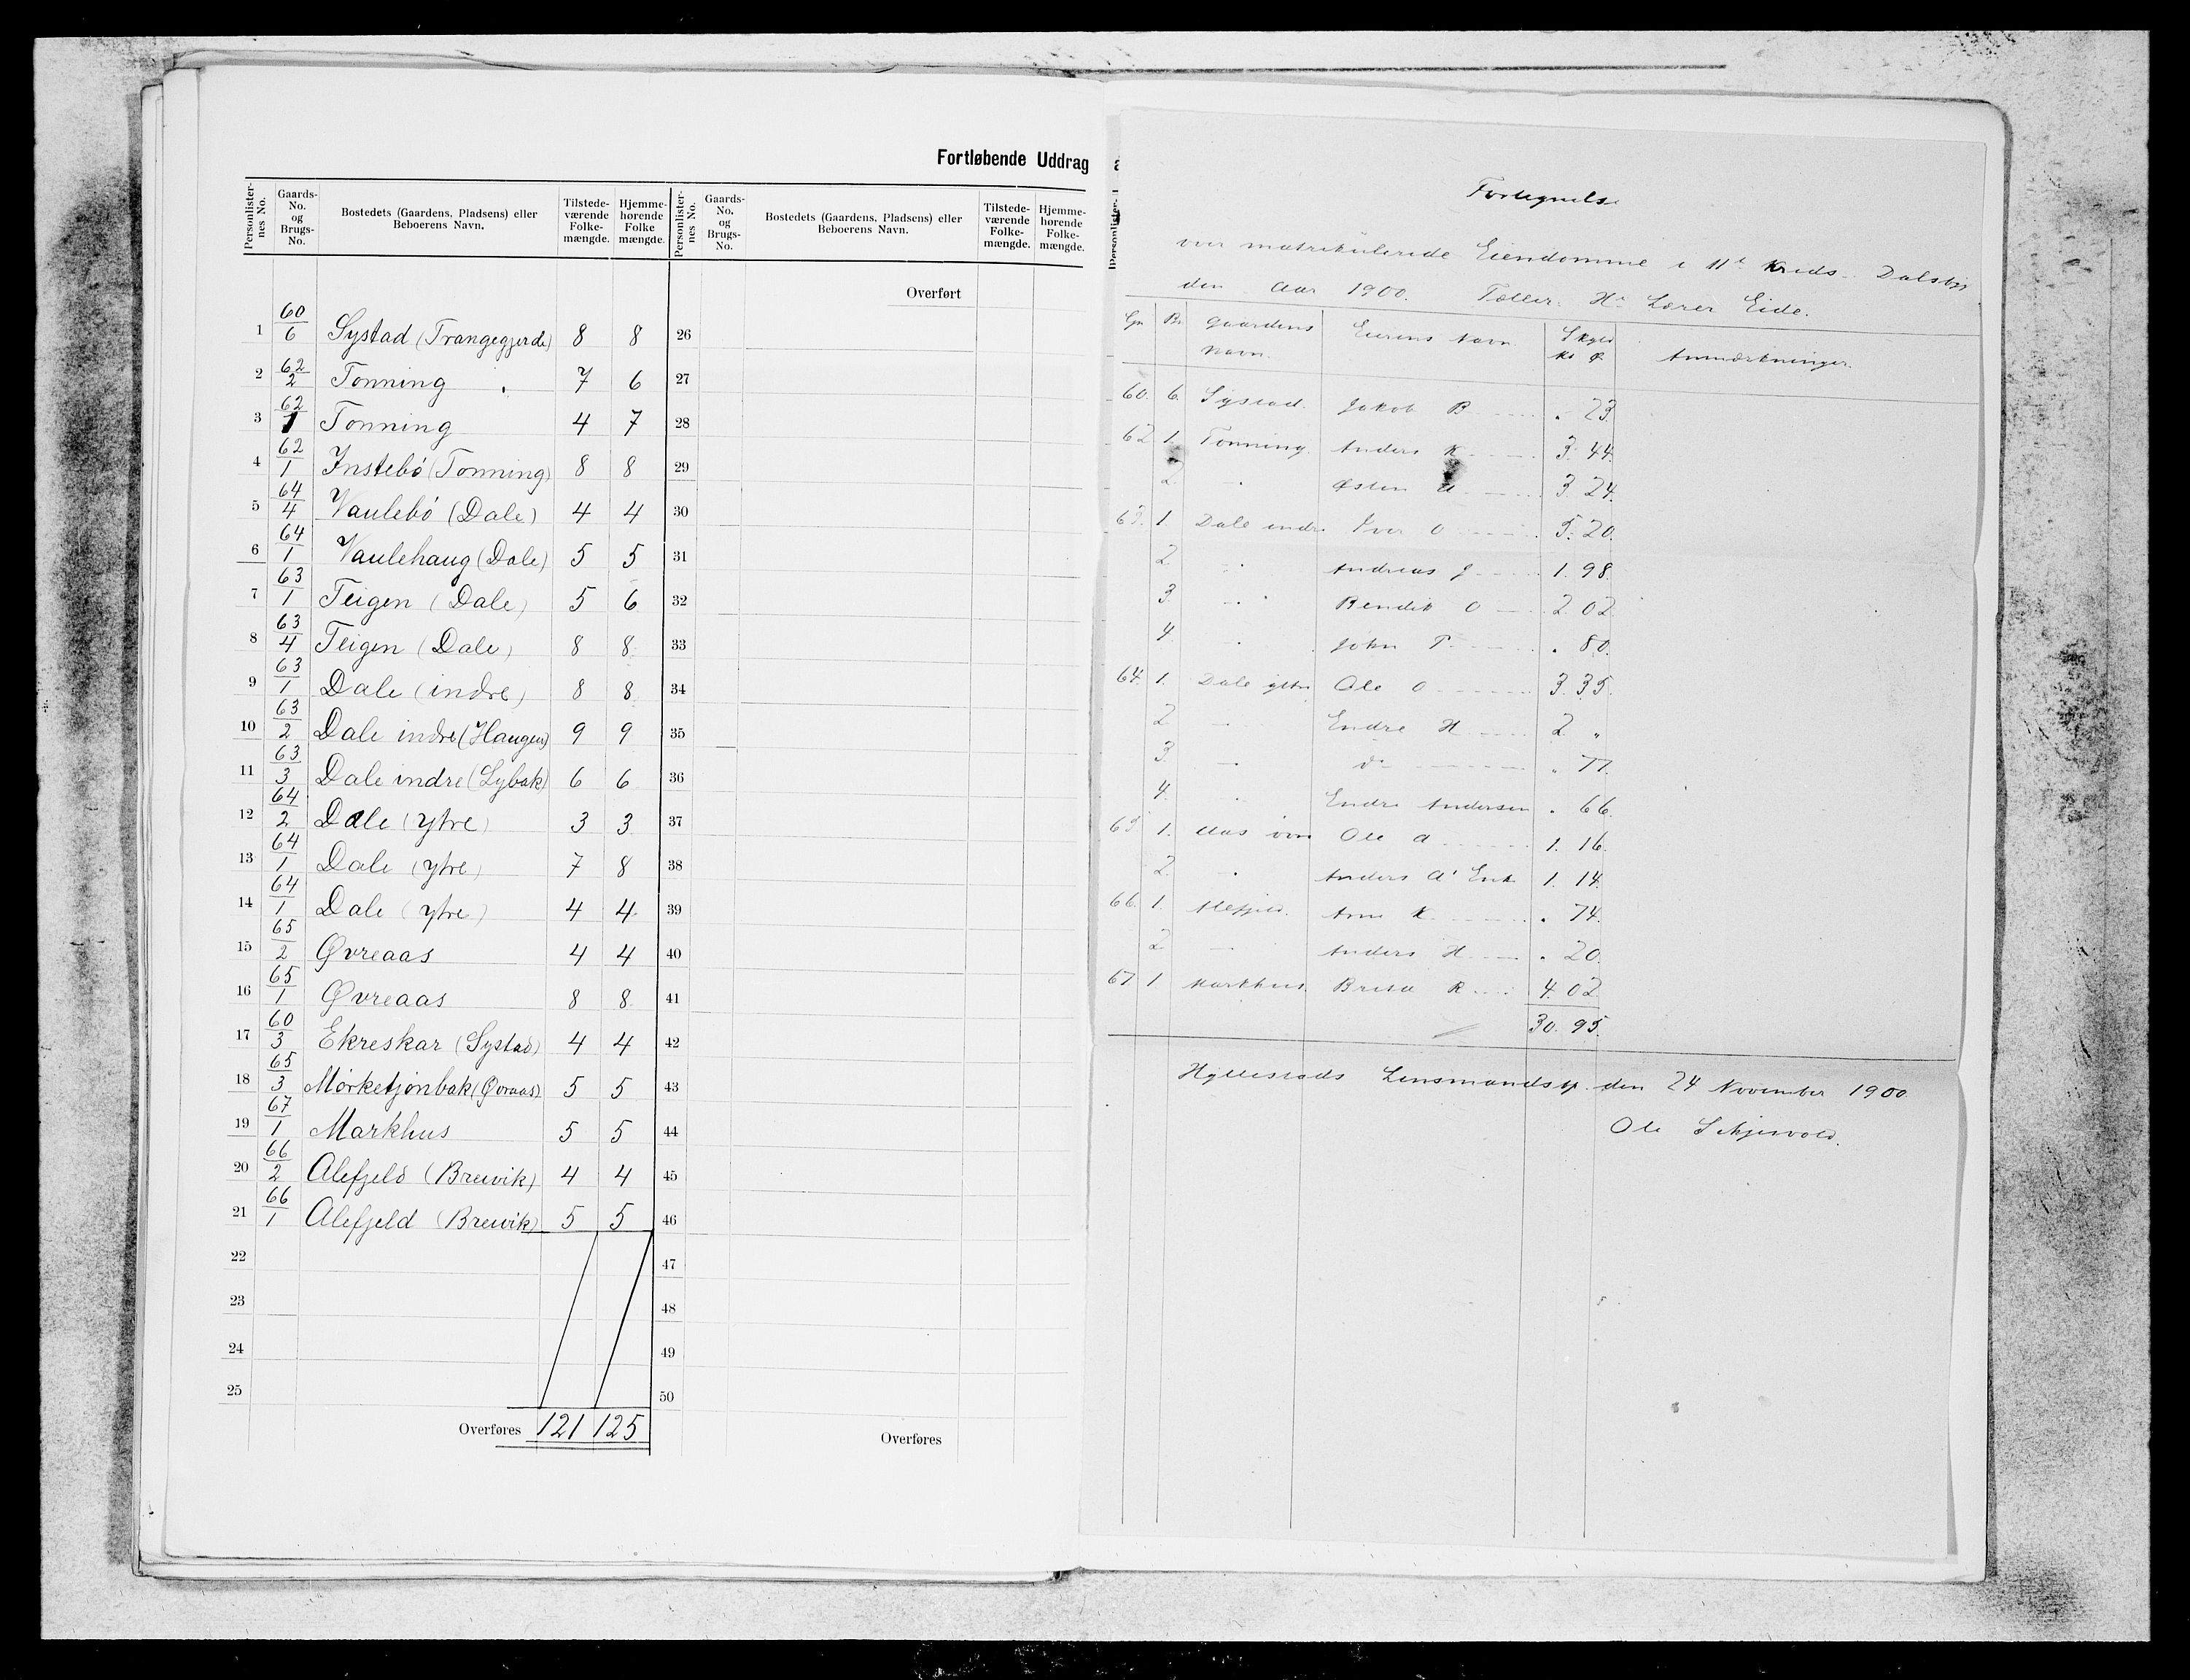 Fortløbende Uddrag
Personlister-nes No. Gaards-No. og Brugs-No. Bostedets (Gaardens, Pladsens) eller Beboerens Navn. Tilstede-værende Folke-mængde. Hjemme-hørende Folke mængde. Personlister-nes No. Gaards-No. og Brugs-No. Bostedets (Gaardens, Pladsens) eller Beboerens Navn. Tilstede-værende Folke-mængde. Hjemme-hørende Folke-mængde.
Overført
1 60/6 Systad (Trangegjerde) 8 8 26
2 62/2 Tonning 7 6 27
3 62/1 Tonning 4 7 28
4 62/1 Instebö (Tonning) 8 8 29
5 64/4 Vaulebö (Dale) 4 4 30
6 64/1 Vaulehaug (Dale) 5 5 31
7 63/1 Teigen (Dale) 5 6 32
8 63/4 Teigen (Dale) 8 8 33
9 63/1 Dale (indre) 8 8 34
10 63/2 Dale indre (Haugen) 9 9 35
11 63/3 Dale indre (Lybak) 6 6 36
12 64/2 Dale (ytre) 3 3 37
13 64/1 Dale (ytre) 7 8 38
14 64/1 Dale (ytre) 4 4 39
15 65/2 Øvreaas 4 4 40
16 65/1 Øvreaas 8 8 41
17 60/3 Ekreskar (Systad) 4 4 42
18 65/3 Mörketjönbak (Øvraas) 5 5 43
19 67/1 Markhus 5 5 44
20 66/2 Alefjeld (Breivik) 4 4 45
21 66/1 Alefjeld (Breivik) 5 5 46
22 47
23 48
24 49
25 50
Overføres 121 125 Overføres
Fortegnelse
over matrikulerede Eiendomme i 11te Kreds
den Aar 1900. Tæller: Hr Lærer Eide.
Gn Bn Gaardens Navn. Eierens Navn Skyld Kr Ø Anmærkninger.
60. 6. Systad. Jakob B . 23.
62 1. Tonning. Anders K 3. 44.
2 - Østen 3. 24.
63. 1. Dale indr. Iver O 5. 20.
2 - Andreas J 1. 98.
3. - Bendik O 2. 02
4. - John P . 80.
64. 1. Dale ytr. Ole O 3. 35.
2 - Endre H 2 "
3. - do " 77.
4. - Endre Andersen . 66.
65 1. Aas övr Ole A 1. 16.
2 - Anders A' Enk. 1. 14.
66. 1. Alefjeld. Arne K . 74.
2 - Anders H . 20.
67 1 Markhus. Brita R 4. 02
30. 95.
Hyllestads Lensmandsp. den 24 November 1900
Ole